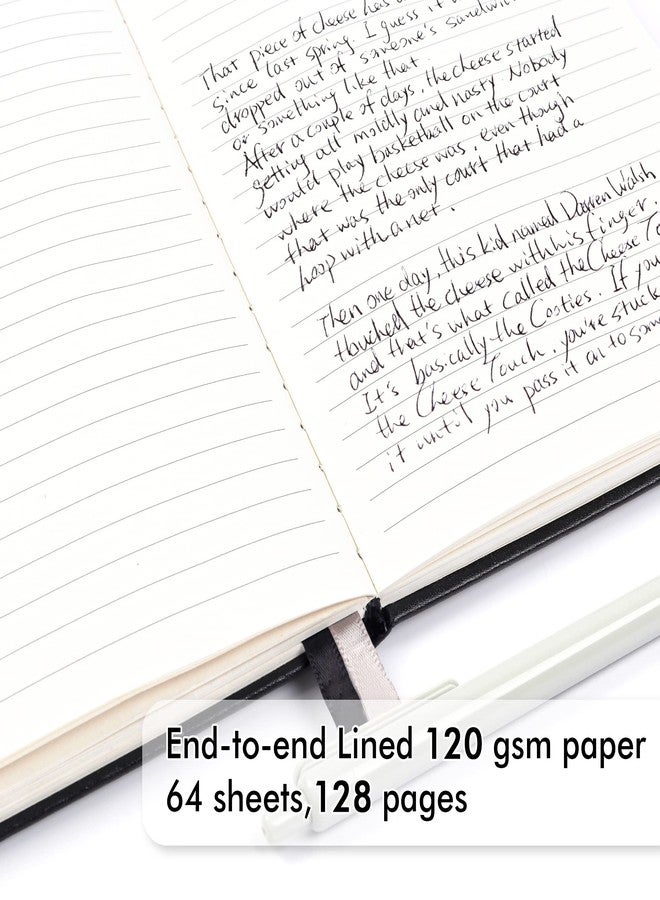 That piece of cheese has
since last spring. I guess it
dropped out of someone's sandwi
or something like that.
After a couple of days, the cheese started
getting all moldly and nasty. Nobody
would play basketball on the court
where the cheese was, even though
that was the only court that had a
hoop with a net.
Then one day, this kid named Darren Walsh
touched the cheese with his finger.
and that's what called the Cheese To
It's basically the Cooties. If you
the Cheese Touch, you're stuck
it until you pass it on to som
End-to-end Lined 120 gsm paper
64 sheets,128 pages